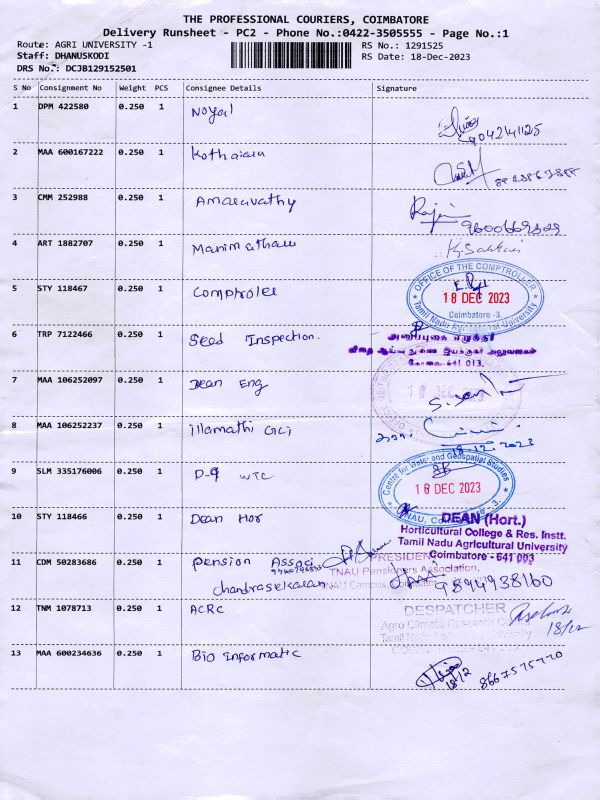 THE PROFESSIONAL COURIERS, COIMBATORE
Delivery Runsheet - PC2 - Phone No.:0422-3505555 - Page No.:1
Route: AGRI UNIVERSITY -1
RS No.: 1291525
Staff: DHANUSKODI
RS Date: 18-Dec-2023
DRS No.: DCJB129152501
S No Consignment No Weight PCS Consignee Details Signature
1 DPM 422580 0.250 1 Noyal
9042141125
2 MAA 600167222 0.250 1
3 CMM 252988 0.250 1 Amaravathy
4 ART 1882707 0.250 1
5 STY 118467 0.250 1 Comptroler
OFFICE OF THE COMPTROLLER
18 DEC 2023
Coimbatore -3.
Tamil Nadu Agricultural University
6 TRP 7122466 0.250 1 Seed Inspection.
கோவை-641 013.
7 MAA 106252097 0.250 1 Dean Eng
8 MAA 106252237 0.250 1 illamathi
18.12.2023
9 SLM 335176006 0.250 1 WTC
Centre for Water and Geospatial Studies
18 DEC 2023
TNAU,
10 STY 118466 0.250 1 Dean Hor
DEAN (Hort.)
Horticultural College & Res. Instt.
Tamil Nadu Agricultural University
Coimbatore - 641 003
11 CDM 50283686 0.250 1 Pension Associ
chandrasekaran
PRESIDENT
TNAU Pensioners Association,
TNAU Campus,
9894938160
12 TNM 1078713 0.250 1 ACRC
DESPATCHER
Agro Climate Research
Tamil Nadu University
18/12
13 MAA 600234636 0.250 1 Bio Informatic
18/12 8667575770